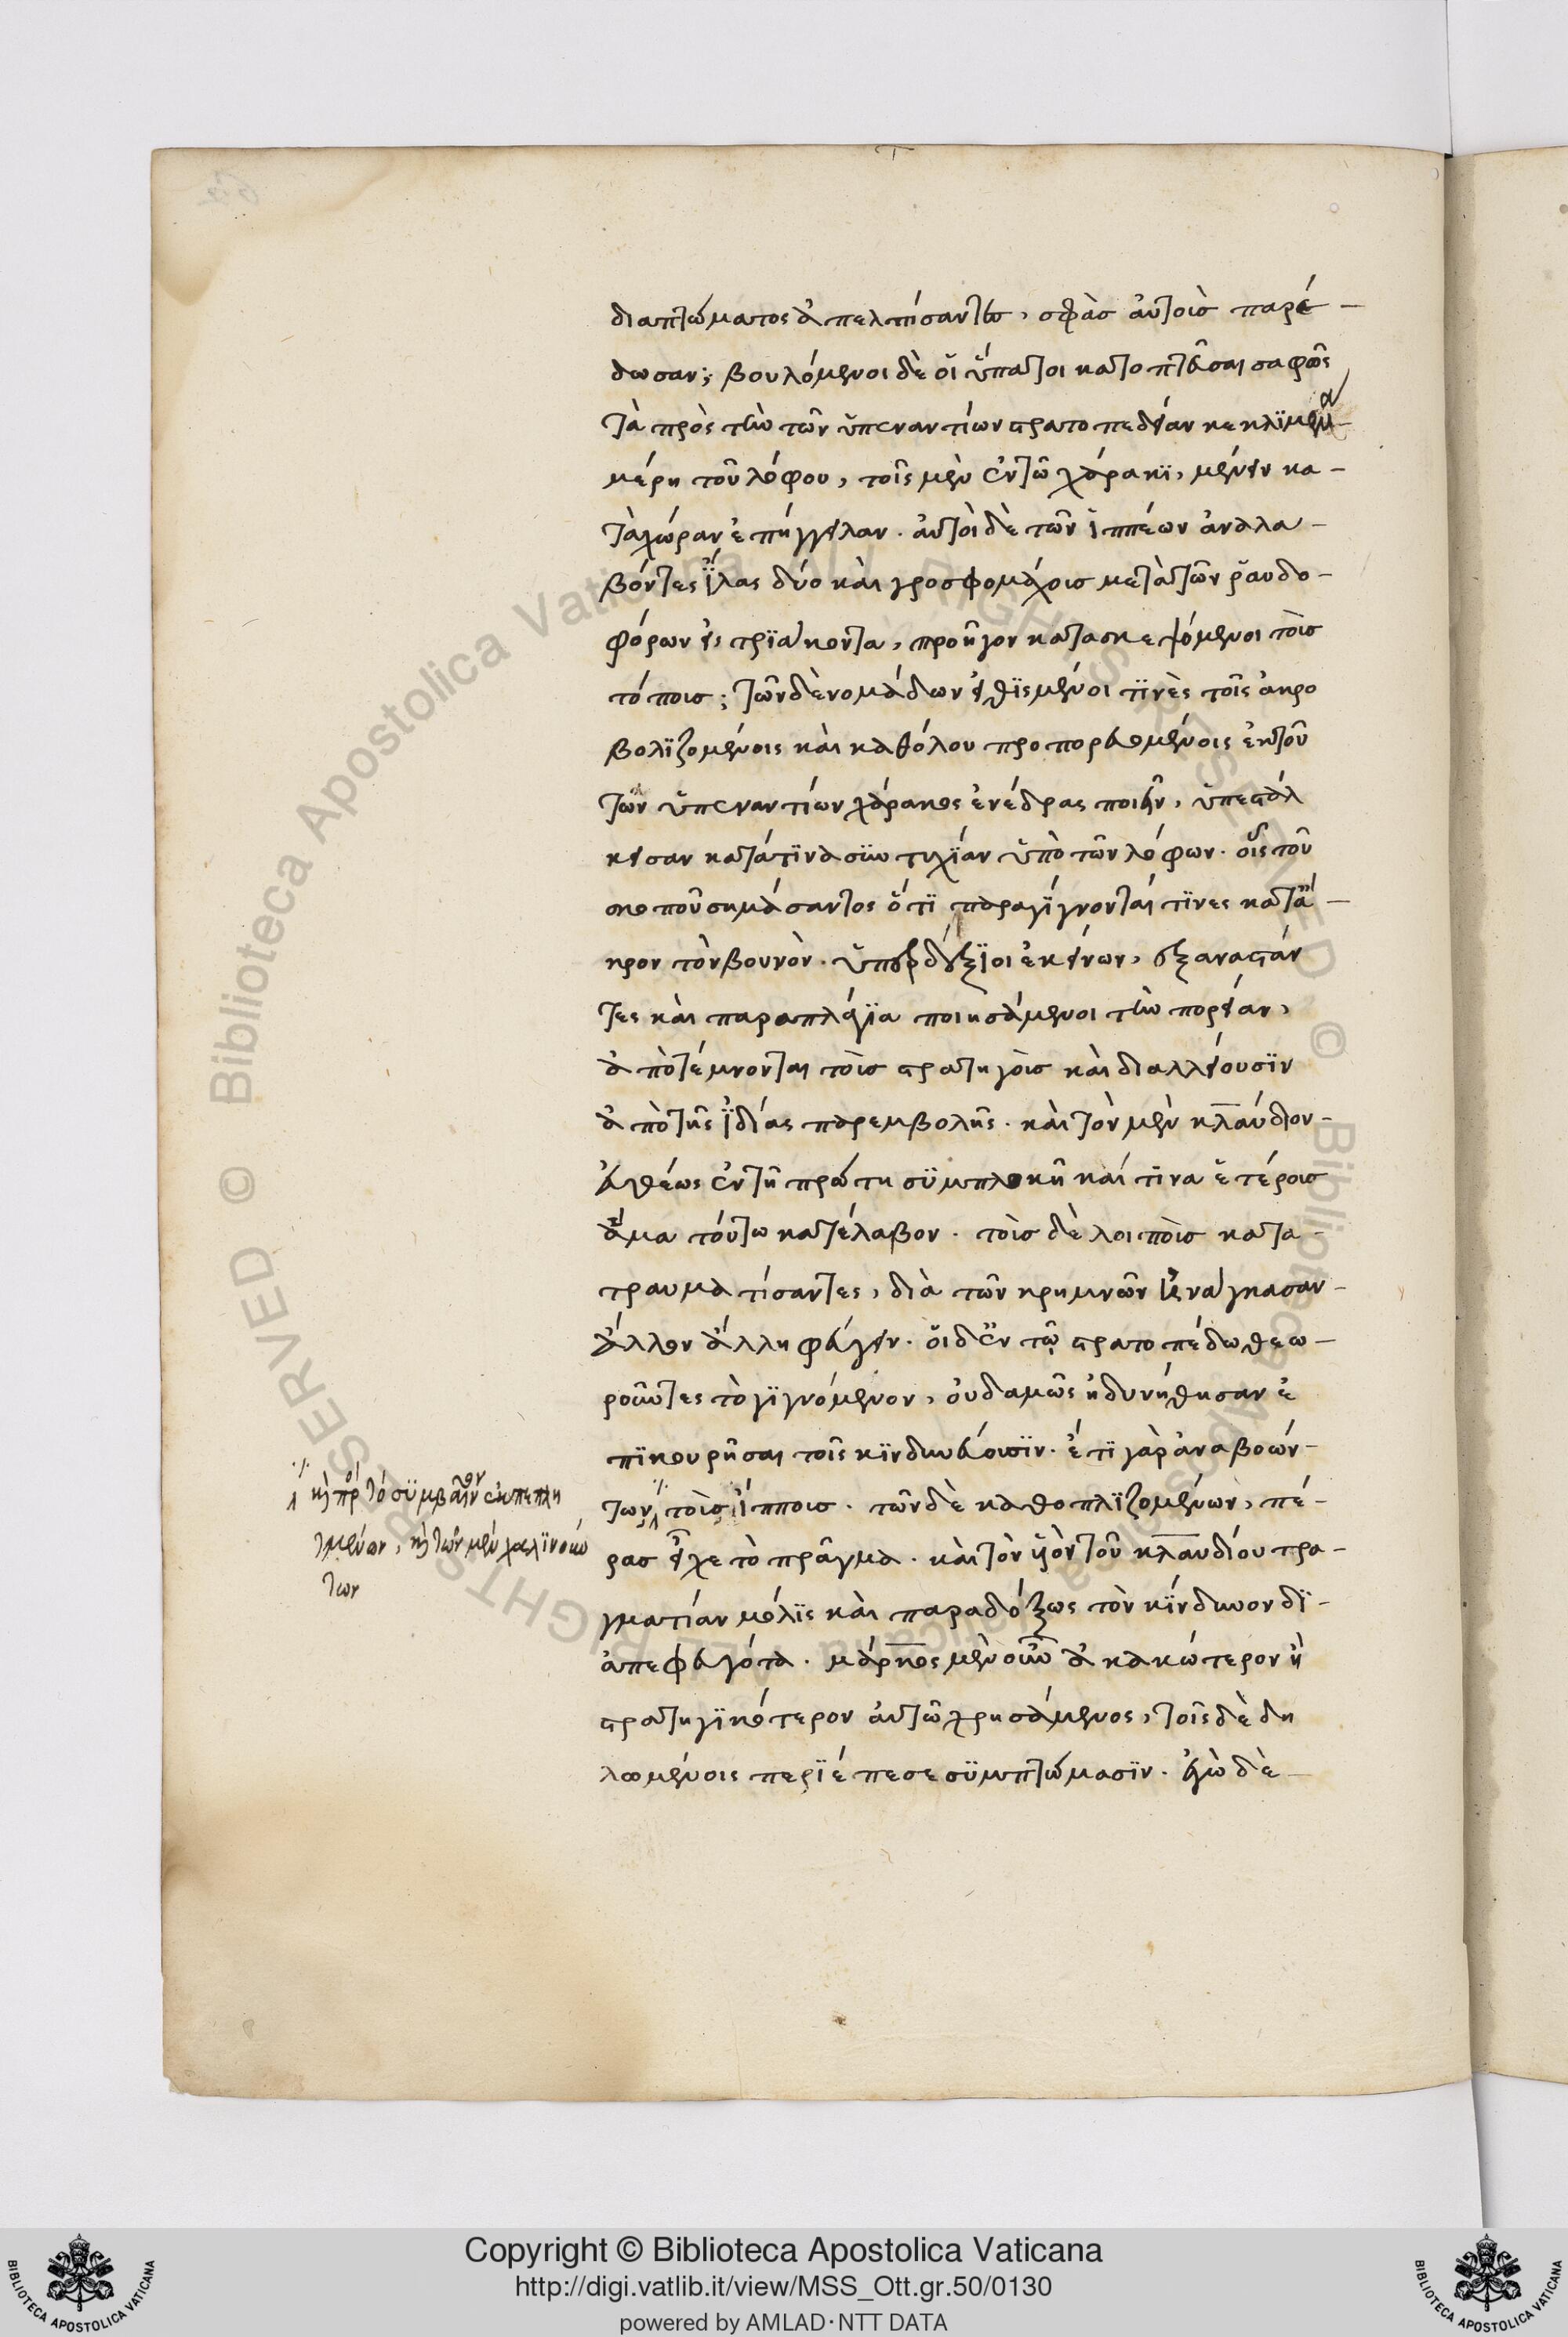 διαπτώματος ἀπελπίσαντες, σφᾶσ αὐτοὶσ παρέ-
δωσαν; βουλόμενοι δὲ οἵ ὕπατοι κατοπτεῦσαι σαφῶς
τὰ πρὸς τὴν τῶν ὑπεναντίων στρατοπεδείαν κεκλϊμένα
μέρη τοῦ λόφου, τοῖς μὲν ἐν τῶ χάρακϊ, μένειν κα-
τὰ χώραν ἐπήγγειλαν. αὐτοὶ δὲ τῶν ἱππέων ἀναλα-
βόντες ἴλας δύο καὶ γροσφομάχοισ μετὰ τῶν ῥαυδο-
φόρων εἰς τρϊάκοντα, προῆγον κατασκεψόμενοι τοὶσ
τόποισ; τῶν δὲ νομάδων εἰθϊσμένοι τϊνὲς τοῖς ἀκρο
βολϊζομένοις καὶ καθόλου προπορευομένοις ἐκ τοῦ
τῶν ὑπεναντίων χάρακος ἐνέδρας ποιεῖν, ὑπεστάλ
κεισαν κατάτϊνα συντυχϊάν ὑπὸ τῶν λόφων. οἷς τοῦ
σκοποῦ σημάσαντος ὅτϊ παραγϊγνονταί τϊνες κατἄ-
κρον τὸν βουνὸν. ὑπερδέξϊοι ἐκείνων, ἐξαναστάν
τες καὶ παραπλάγϊα ποιησάμενοι τὴν πορείαν,
ἀπὸτέμνονται τοὶσ στρατηγοὶσ καὶ διαλλείουσϊν
ἀπὸ τῆς ἰδίας παρεμβολῆς. καὶ τὸν μὲν κλαύδιον-
εὐθέως ἐν τῆ πρώτη συμπλοκῆ καί τινα ἑτέροισ
ἅμα τούτω κατέλαβον. τοὶσ δὲ λοιποὶσ κατα-
τραυματίσαντες, διὰ τῶν κρημνῶν ἠνάγκασαν-
ἄλλον ἄλλη φεύγειν. οἵδἐν τῶ στρατοπέδω θεω-
ροῦντες τὸ γϊγνόμενον, οὐδαμῶς ἠδυνήθησαν ἐ
πϊκουρῆσαι τοῖς κϊνδυνεύουσϊν. ἔτϊ γὰρ ἀναβοών-
των τοὶσ ἵπποισ. τῶν δὲ καθοπλϊζομένων, πέ-
ρασ εἶχε τὸ πρᾶγμα. καὶ τὸν υἱὸν τοῦ κλαυδίου τρα-
γματίαν μόλϊς καὶ παραδόξως τὸν κίνδυνον δϊ-
απεφευγότα. μάρκος μὲν οὖν ἀκακώτερον ἢ
στρατηγϊκότερον αὐτῶ χρησάμενος, τοῖς δὲ δη
λουμένοις περϊέπεσε συμπτώμασϊν. ἐγὼ δὲ
καὶ πρὸς τὸ συμβαῖνον ἐκπεπλη
γμένων, καὶ τῶν μὲν χαλϊνούν
των